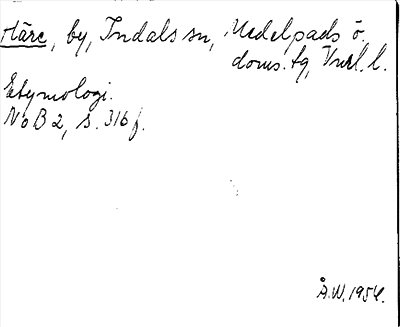 Häre, by, Indals sn, Medelpads ö.
doms. tg, Vnrl. l.
Etymologi.
NoB 2, s. 316 f.
Å.W. 1954.